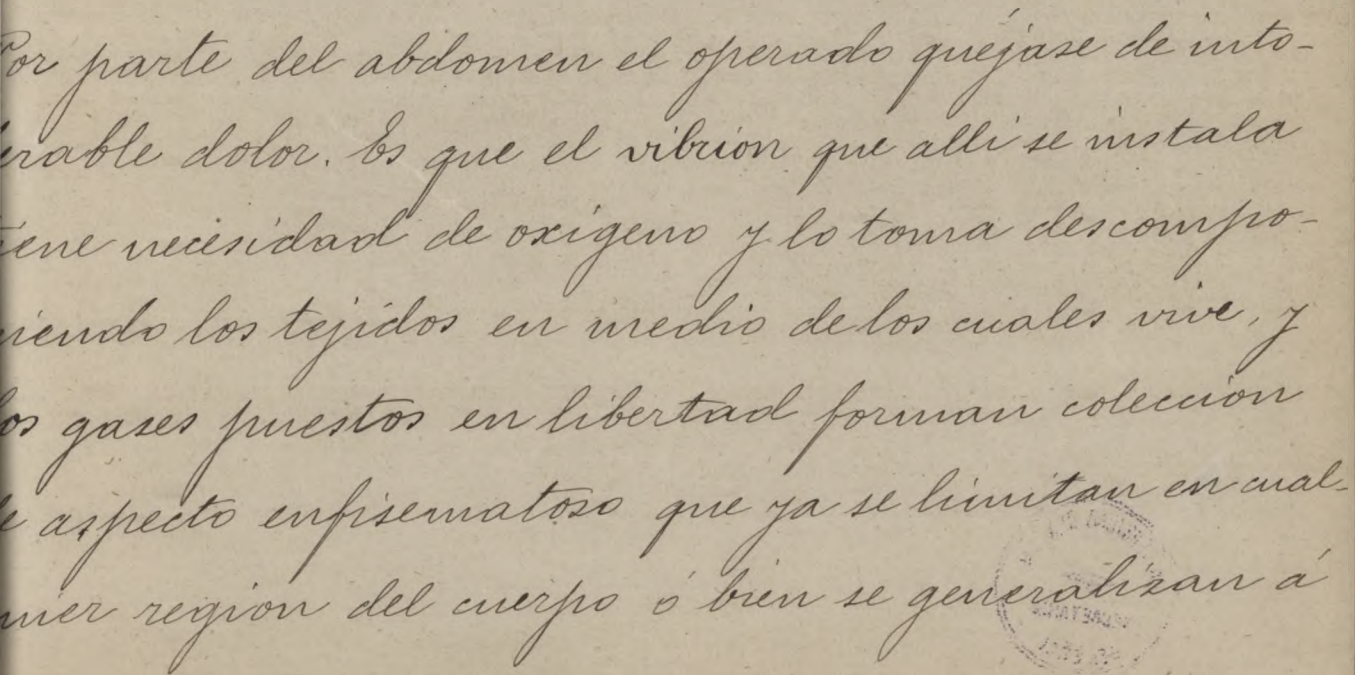 Por parte del abdomen el operado quéjase de into-
erable dolor. Es que el vibrion que alli se instala
iene necesidad de oxigeno y lo toma descompo-
niendo los tejidos en medio de los cuales vive, y
os gases puestos en libertad forman coleccion
e aspecto enfisematoso que ya se limitan en cual-
uier region del cuerpo ó bien se generalizan á